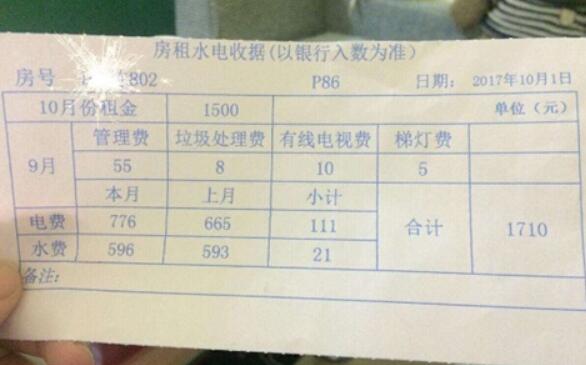 房租水电收据(以银行入数为准)
房号 802 P86 日期: 2017年10月1日
10月份租金 1500 单位(元)
管理费 垃圾处理费 有线电视费 梯灯费
9月 55 8 10 5
本月 上月 小计
电费 776 665 111 合计 1710
水费 596 593 21
备注: